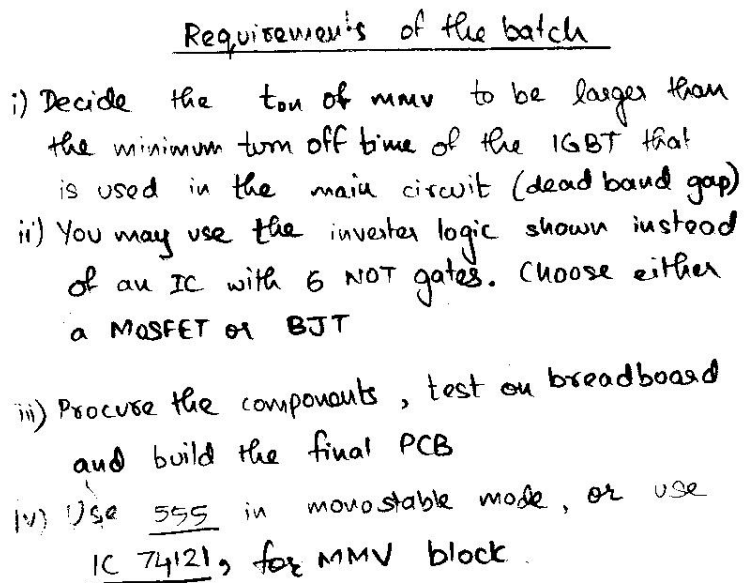 Requirements of the batch
i) Decide the ton of MMV to be larger than
the minimum turn off time of the IGBT that
is used in the main circuit (dead band gap)
ii) You may use the inverter logic shown instead
of an IC with 6 NOT gates. Choose either
a MOSFET or BJT
iii) Procure the components, test on breadboard
and build the final PCB
iv) Use 555 in monostable mode, or use
IC 74121, for MMV block.